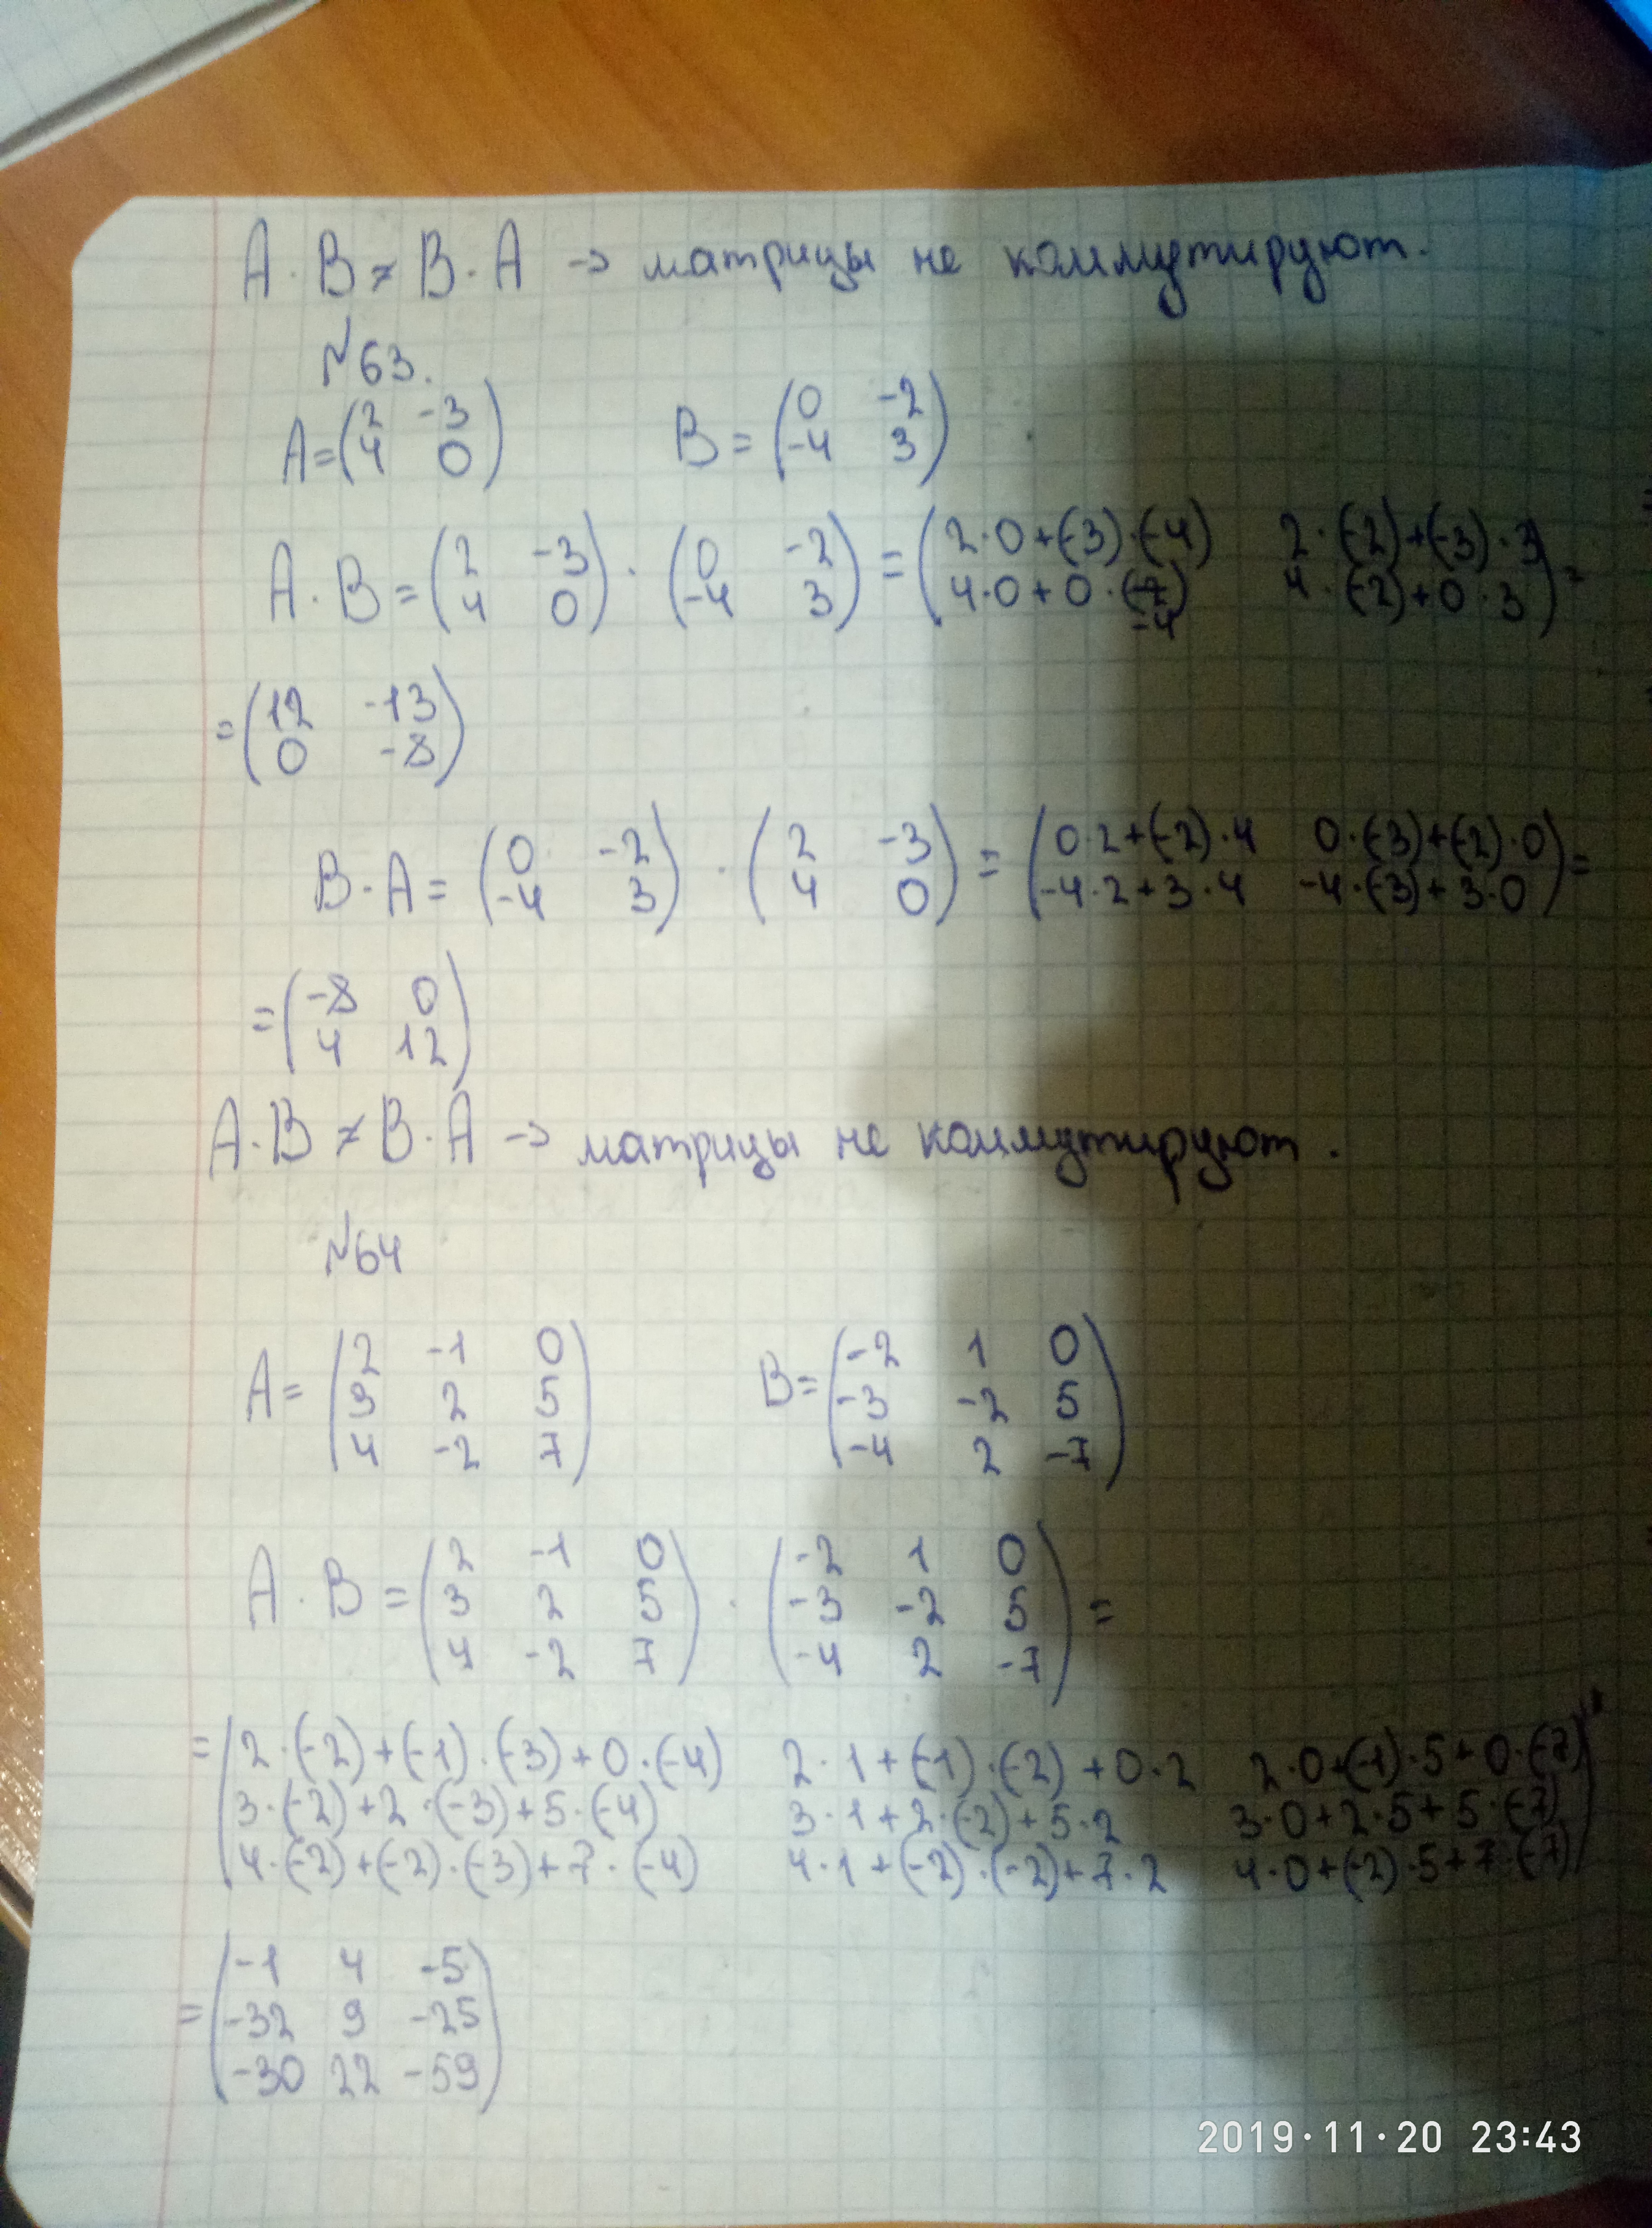 A · B ≠ B · A → матрицы не коммутируют.
№63.
A = (2 -3
4 0) B = (0 -2
-4 3)
A · B = (2 -3
4 0) · (0 -2
-4 3) = (2·0+(-3)·(-4) 2·(-2)+(-3)·3
4·0+0·(-4) 4·(-2)+0·3) =
= (12 -13
0 -8)
B · A = (0 -2
-4 3) · (2 -3
4 0) = (0·2+(-2)·4 0·(-3)+(-2)·0
-4·2+3·4 -4·(-3)+3·0) =
= (-8 0
4 12)
A · B ≠ B · A → матрицы не коммутируют.
№64
A = (2 -1 0
3 2 5
4 -2 7) B = (-2 1 0
-3 -2 5
-4 2 -7)
A · B = (2 -1 0
3 2 5
4 -2 7) · (-2 1 0
-3 -2 5
-4 2 -7) =
= (2·(-2)+(-1)·(-3)+0·(-4) 2·1+(-1)·(-2)+0·2 2·0+(-1)·5+0·(-7)
3·(-2)+2·(-3)+5·(-4) 3·1+2·(-2)+5·2 3·0+2·5+5·(-7)
4·(-2)+(-2)·(-3)+7·(-4) 4·1+(-2)·(-2)+7·2 4·0+(-2)·5+7·(-7)) =
= (-1 4 -5
-32 9 -25
-30 22 -59)
2019·11·20 23:43